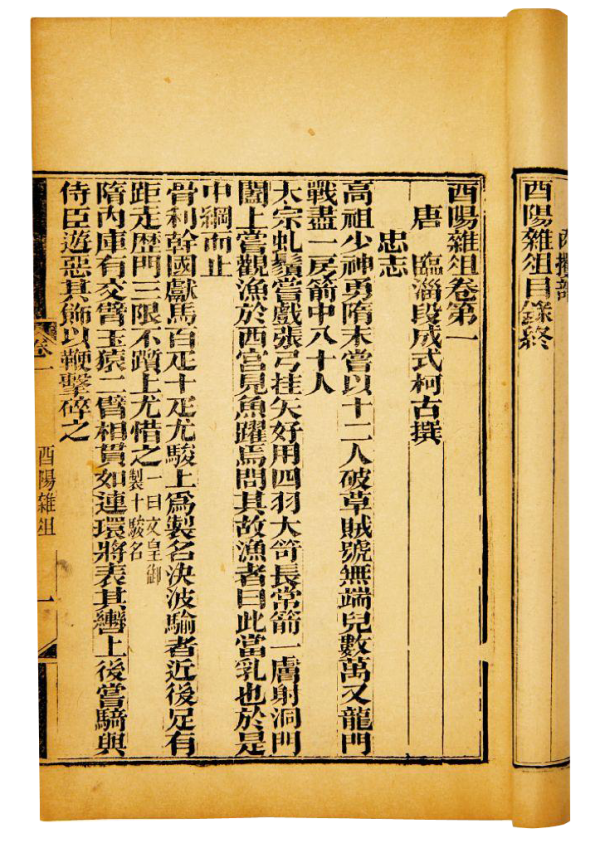 酉陽雜俎目錄終
酉陽雜俎卷第一
唐 臨淄段成式柯古撰
忠志
高祖少神勇隋末嘗以十二人破草賊號無端兒數萬又龍門
戰盡一房箭中八十人
太宗虬鬚嘗戲張弓挂矢好用四羽大笴長常箭一膚射洞門
闔上嘗觀漁於西宮見魚躍焉問其故漁者曰此當乳也於是
中網而止
骨利幹國獻馬百疋十疋尤駿上爲製名決波騟者近後足有
距走歷門三限不躓上尤惜之一曰文皇御製十駿名
隋內庫有交臂玉猿二臂相貫如連環將表其轡上後嘗騎與
侍臣遊惡其飾以鞭擊碎之
卷一
酉陽雜俎
一